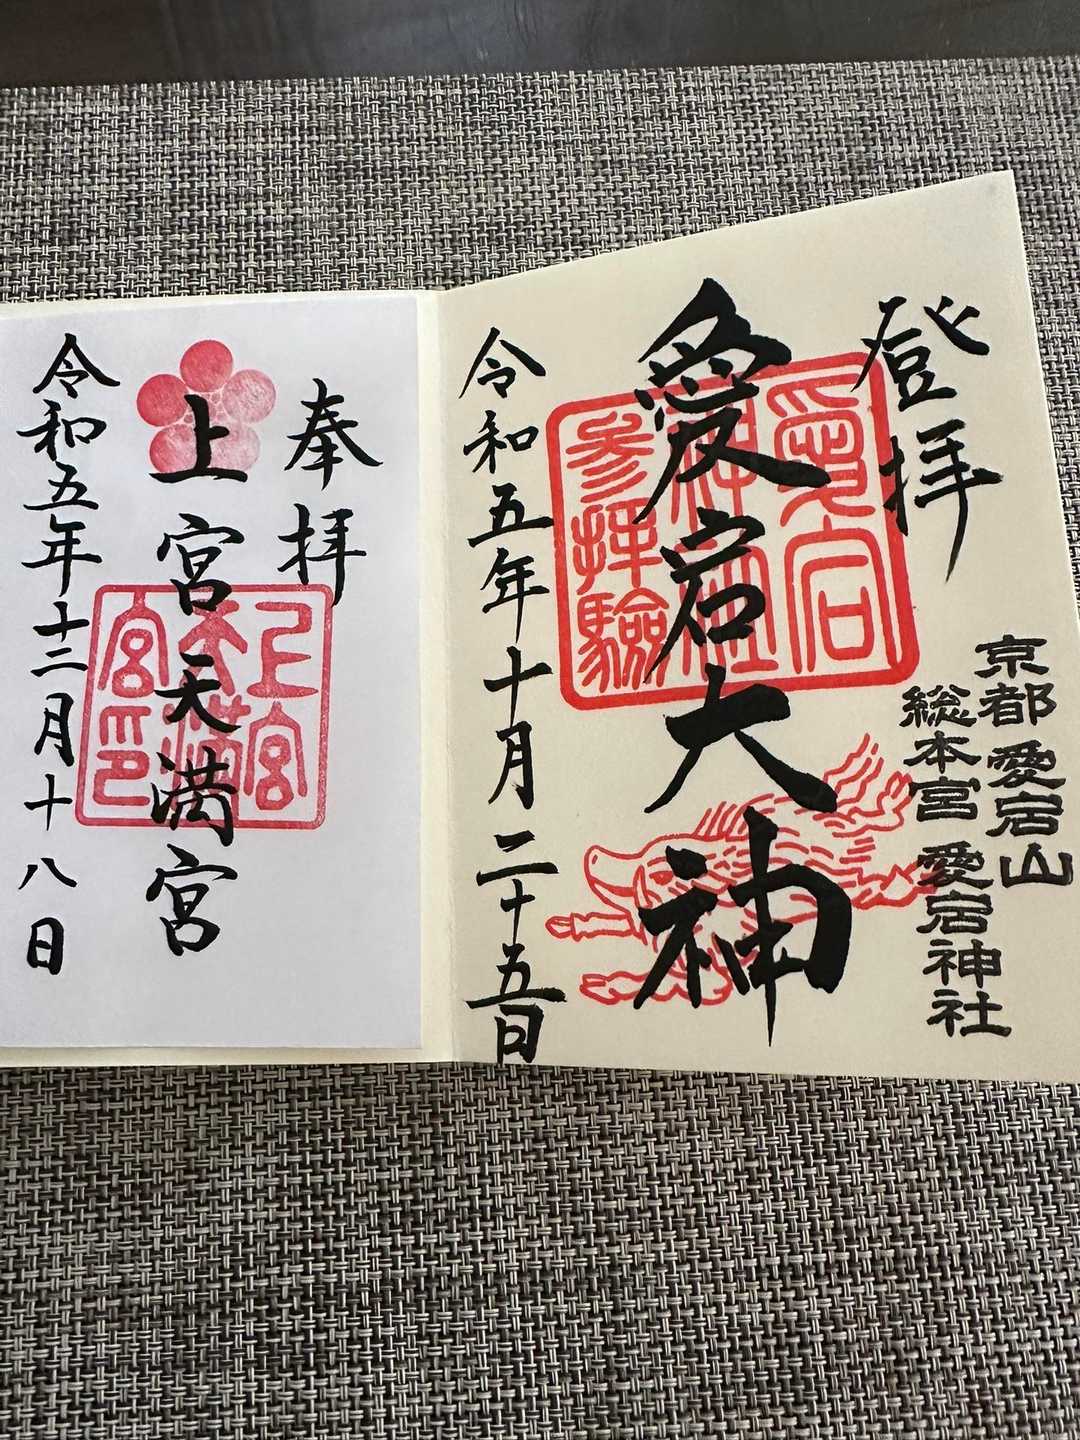 登拝
京都愛宕山
総本宮愛宕神社
愛宕大神
愛宕
神社
参拝験
令和五年十月二十五日
奉拝
上宮天満宮
上宮
天満
宮印
令和五年十二月十八日